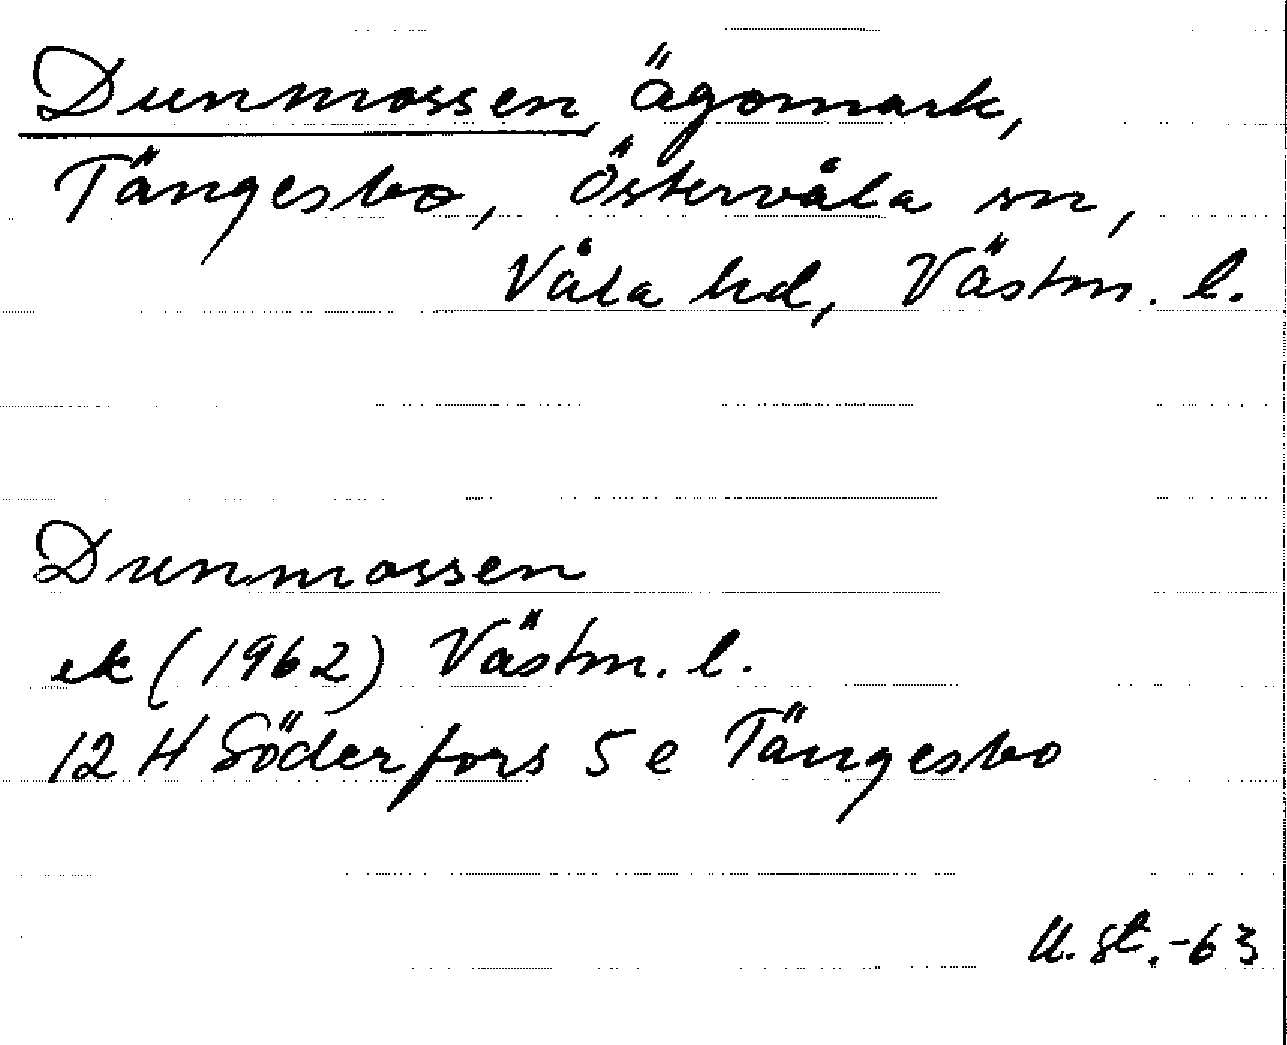 Dunmossen, ägomark,
Tängesbo, Östervåla sn,
Våla hd, Västm. l.
Dunmossen
ek (1962) Västm. l.
12 H Söderfors 5 e Tängesbo
U. St. -63